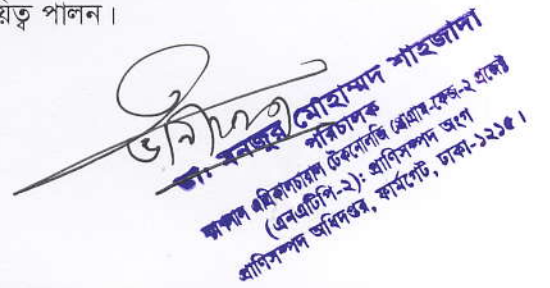 য়িত্ব পালন।
ডা. মনজুর মোহাম্মদ শাহজাদা
পরিচালক
ন্যাশনাল এগ্রিকালচারাল টেকনোলজি প্রোগ্রাম-ফেজ-২ প্রজেক্ট
(এনএটিপি-২): প্রাণিসম্পদ অংগ
প্রাণিসম্পদ অধিদপ্তর, ফার্মগেট, ঢাকা-১২১৫।